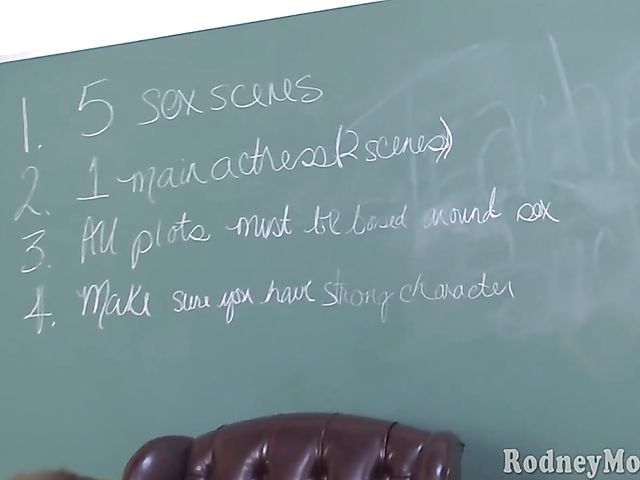 1. 5 sex scenes
2. 1 main actress (2 scenes)
3. All plots must be based around sex
4. Make sure you have strong character
RodneyMo